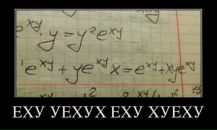 e^xy · y = y²e^xy
e^xy + ye^xy x = e^xy + xye^xy
ЕХУ УЕХУХ ЕХУ ХУЕХУ